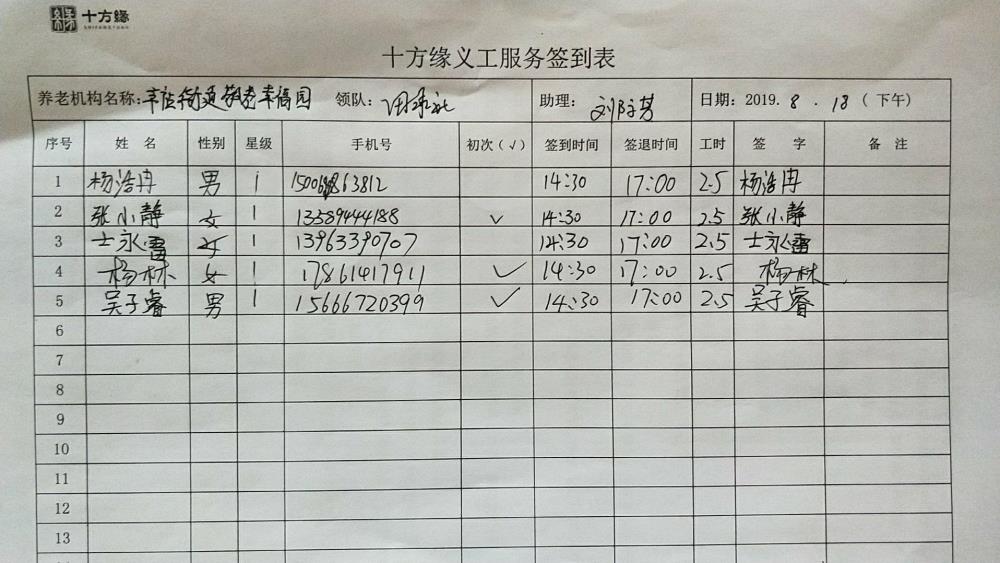 十方缘
十方缘义工服务签到表
养老机构名称: 街道敬老幸福园 领队: 助理: 日期: 2019. 8 . 18 ( 下午)
序号 姓 名 性别 星级 手机号 初次 (√) 签到时间 签退时间 工时 签 字 备 注
1 杨浩冉 男 1 14:30 17:00 2.5 杨浩冉
2 张小静 女 1 13589444188 √ 14:30 17:00 2.5 张小静
3 士永雷 女 1 13963390707 14:30 17:00 2.5 士永雷
4 杨林 女 1 17861417911 √ 14:30 17:00 2.5 杨林
5 吴子睿 男 1 15666720399 √ 14:30 17:00 2.5 吴子睿
6
7
8
9
10
11
12
13